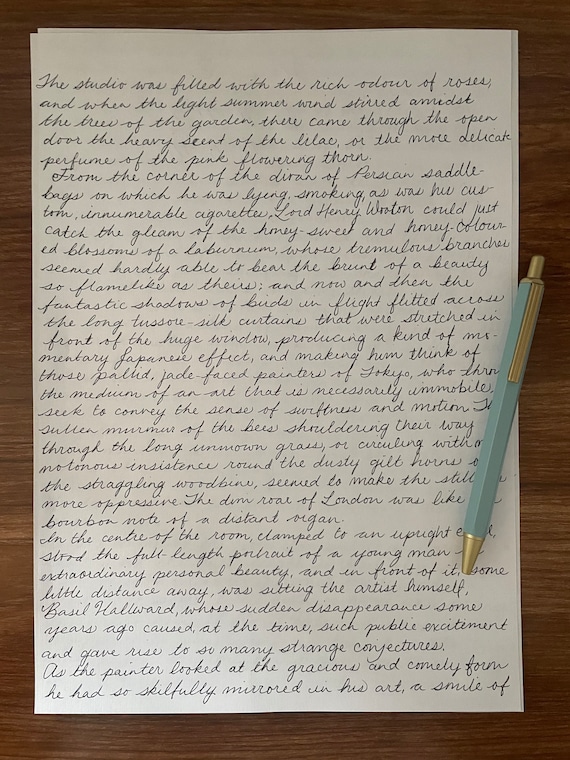 The studio was filled with the rich odour of roses,
and when the light summer wind stirred amidst
the trees of the garden, there came through the open
door the heavy scent of the lilac, or the more delicate
perfume of the pink flowering thorn.
From the corner of the divan of Persian saddle-
bags on which he was lying, smoking, as was his cus-
tom, innumerable cigarettes, Lord Henry Wooton could just
catch the gleam of the honey-sweet and honey-colour-
ed blossoms of a laburnum, whose tremulous branches
seemed hardly able to bear the brunt of a beauty
so flamelike as theirs; and now and then the
fantastic shadows of birds in flight flitted across
the long tussore-silk curtains that were stretched in
front of the huge window, producing a kind of mo-
mentary Japanese effect, and making him think of
those pallid, jade-faced painters of Tokyo, who thro
the medium of an art that is necessarily immobile,
seek to convey the sense of swiftness and motion. Th
sullen murmur of the bees shouldering their way
through the long unmown grass, or circling with m
notonous insistence round the dusty gilt horns o
the straggling woodbine, seemed to make the still
more oppressive. The dim roar of London was like
bourbon note of a distant organ.
In the centre of the room, clamped to an upright e
stood the full-length portrait of a young man
extraordinary personal beauty, and in front of it, some
little distance away, was sitting the artist himself,
Basil Hallward, whose sudden disappearance some
years ago caused, at the time, such public excitement
and gave rise to so many strange conjectures.
As the painter looked at the gracious and comely form
he had so skilfully mirrored in his art, a smile of